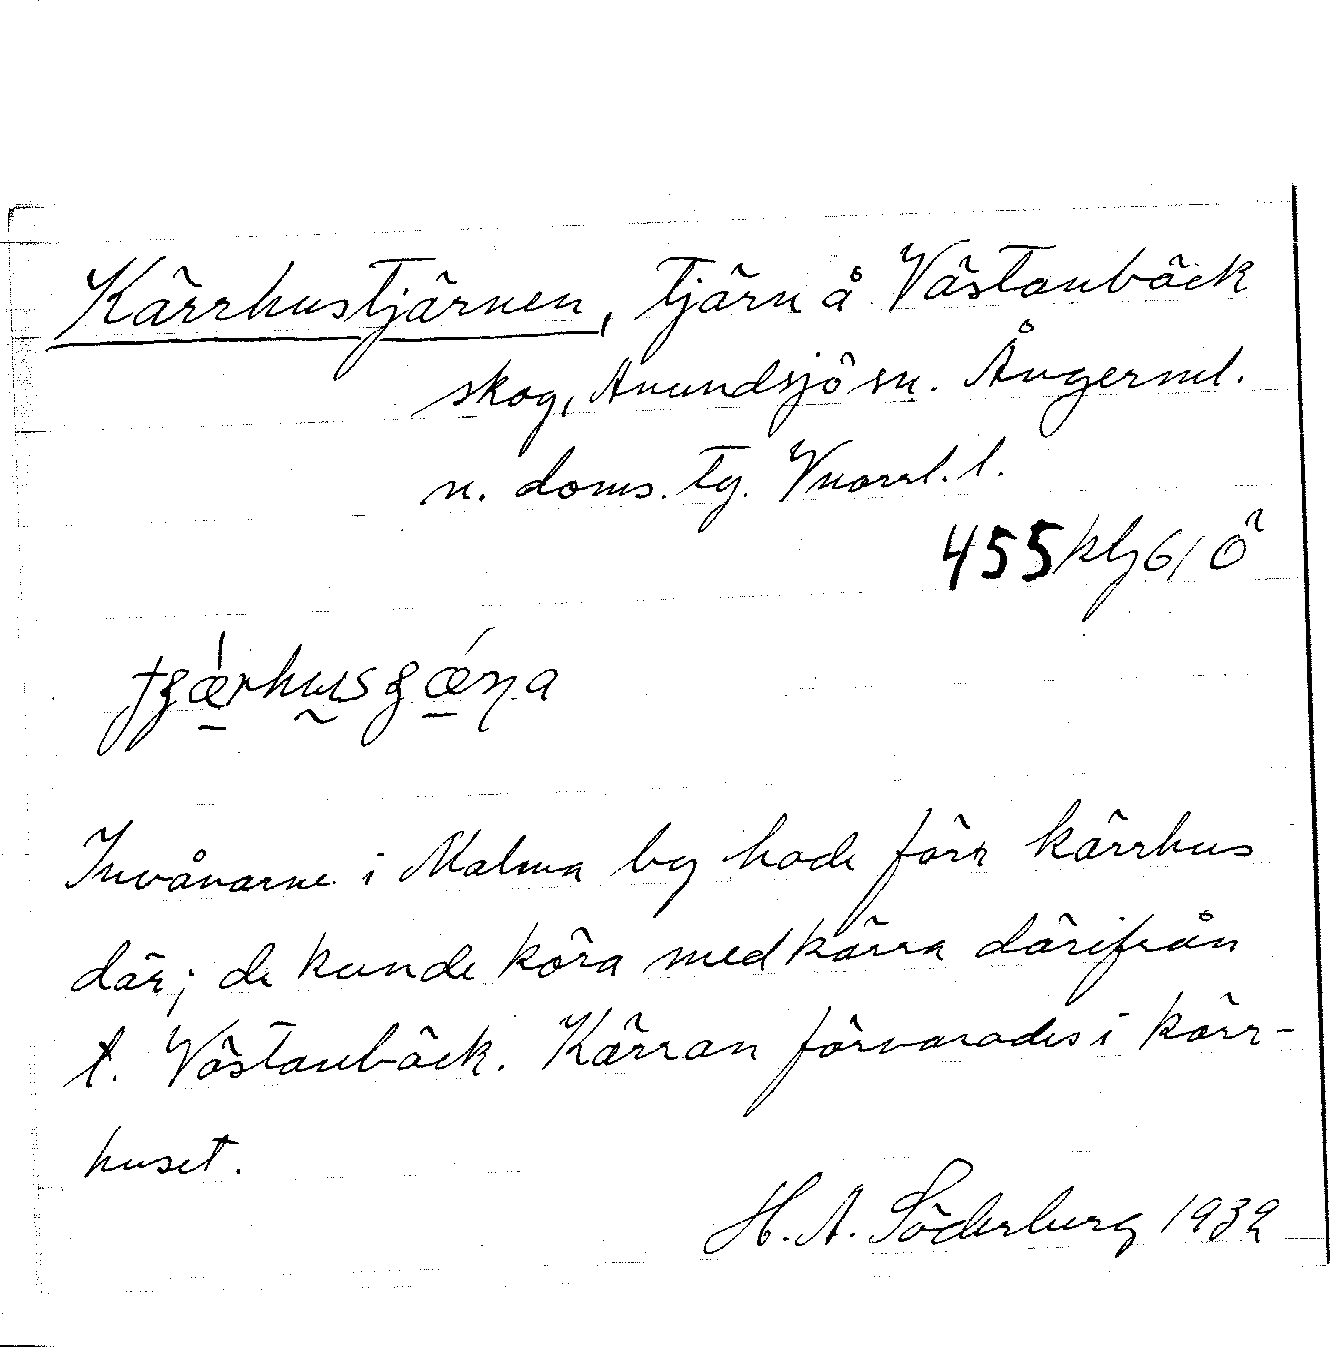 Kärrhustjärnen, tjärn å Västanbäck
skog, Anundsjö sn. Ångerml.
n. doms. tg. Vnorrl. l.
455 klg 61 Ö
Invånarne i Malma by hade förr kärrhus
där; de kunde köra med kärra därifrån
t. Västanbäck. Kärran förvarades i kärr-
huset.
H. A. Söderberg 1939